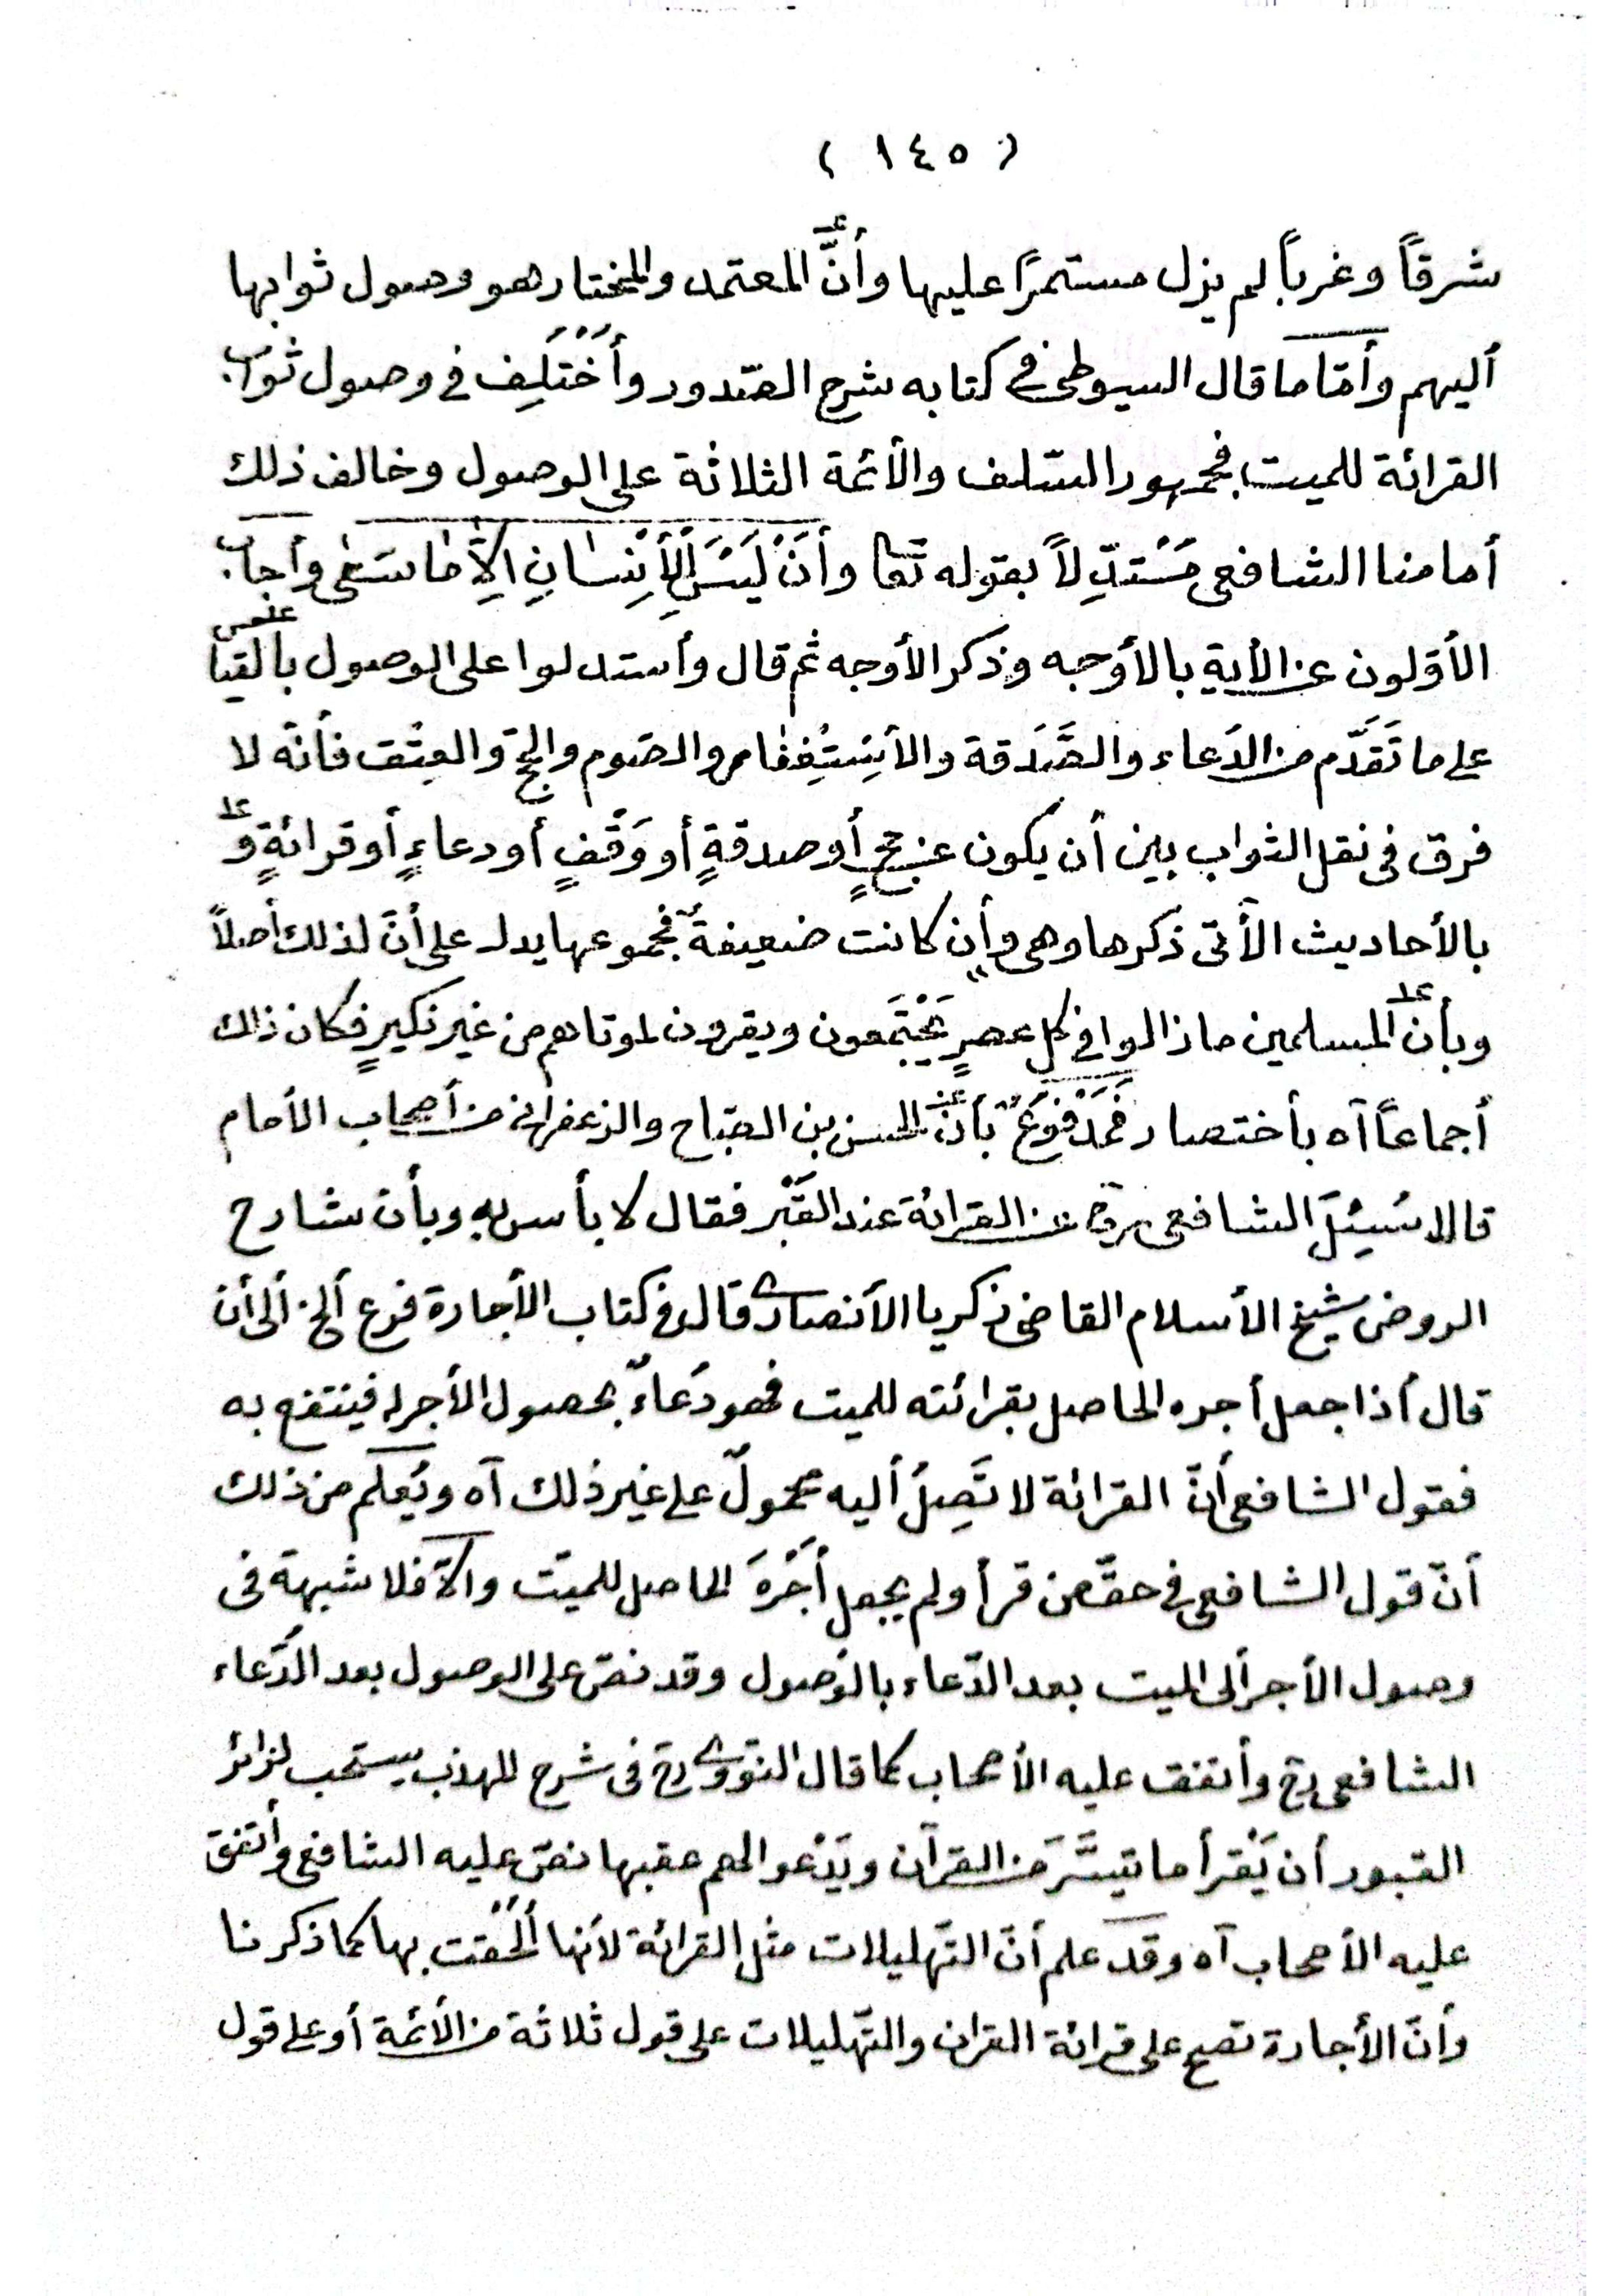 ( ١٤٥ )
شرقاً وغرباً لم يزل مستمرًا عليها وأنَّ المعتمد والمختار هو وصول ثوابها
أليهم وأمّا ما قال السيوطى فى كتابه شرح الصّدور وأُخْتُلِف فى وصول ثواب
القرائة للميت فجمهور السّلف والأئمة الثلاثة على الوصول وخالف ذلك
أمامنا الشافعى مُسْتدِلاً بقوله تعا وأَنْ لَيْسَ لِلأِنْسَانِ اِلاَّ مَا سَعٰى وأجاب
الأوّلون عن الأية بالأوجه وذكر الأوجه ثم قال وأستدلوا على الوصول بالقيا
على ما تَقَدَّم من الدّعاء والصَّدَقة والأسْتِغْفَار والصّوم والحجّ والعِتْق فأنّه لا
فرق فى نقل الثواب بين أن يكون عن حجٍ أو صدقةٍ أو وَقْفٍ أو دعاءٍ أو قرائةٍ و
بالأحاديث الأتى ذكرها وهى وأن كانت ضعيفةً فمجموعها يدل على أنّ لذلك أصلاً
وبأنّ المسلمين ما زالوا فى كل عصرٍ يَجْتَمعون ويقرؤن لموتاهم من غير نكيرٍ فكان ذلك
أجماعًا آه بأختصار فَمَدْفُوعٌ بأنّ الحسن بن الصّباح والزعفرانى من أصحاب الأمام
قالا سُئِلَ الشافعى رح عن القرائة عند القَبْر فقال لا بأس به وبأن شارح
الروض شيخ الأسلام القاضى زكريا الأنصارى قال فى كتاب الأجارة فرع ألخ ألى أن
قال أذا جعل أجره الحاصل بقرائته للميت فهو دُعاءٌ بحصول الأجر له فينتفع به
فقول الشافعى أنّ القرائة لا تَصِلُ أليه محمولٌ على غير ذلك آه ويُعلَم من ذلك
أنّ قول الشافعى فى حقّ من قرأ ولم يجعل أَجْرَهُ الحاصل للميّت وألاّ فلا شبهة فى
وصول الأجر ألى الميت بعد الدّعاء بالوُصول وقد نصّ على الوصول بعد الدُّعاء
الشافعى رح وأتفق عليه الأصحاب كما قال النّووى رح فى شرح المهذب يستحب لزائر
القبور أن يَقْرأ ما تيسَّرَ من القرآن ويَدْعو لهم عقبها نصّ عليه الشافعى وأتّفق
عليه الأصحاب آه وقد علم أنّ التّهليلات مثل القرائة لأنها أُلْحُقت بها كما ذكرنا
وأنّ الأجارة تصح على قرائة القران والتّهليلات على قول ثلاثة من الأئمة أو على قول